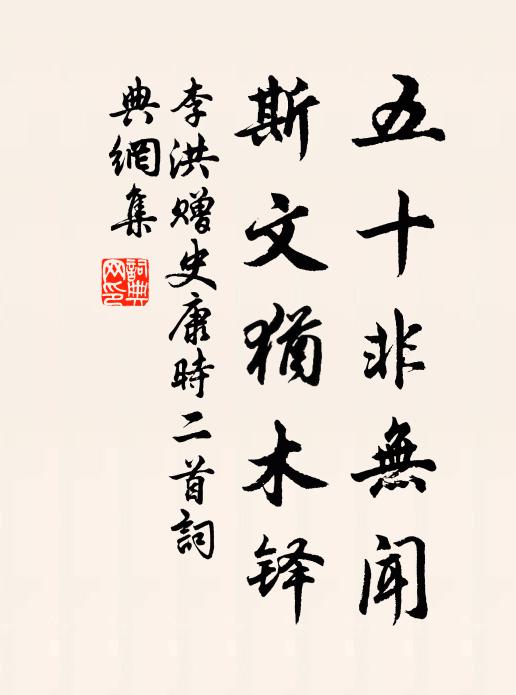 五十非無聞
斯文猶木铎
李洪赠史康時二首詞
典網集
詞典
网印